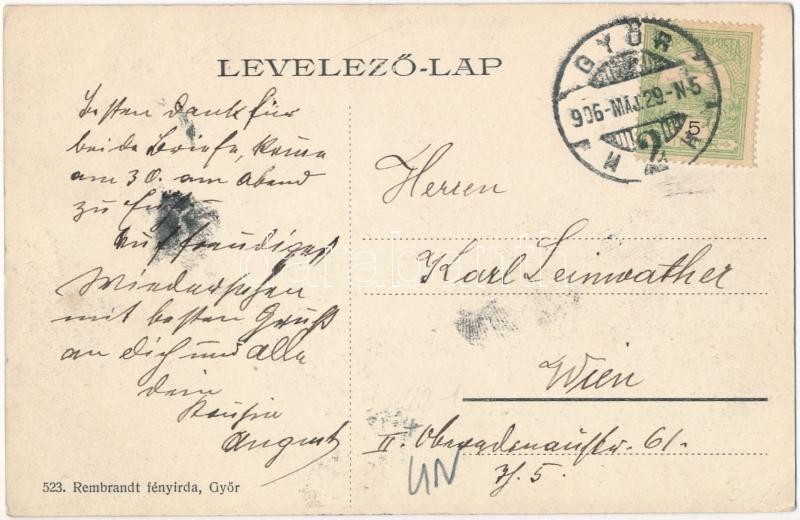 LEVELEZŐ-LAP
GYŐR
906-MÁJ.29.-N-5
2
5
Besten Dank für
beide Briefe, komme
am 30. am Abend
zu Euch
Auf freudiges
Wiedersehen
mit besten Gruß
an dich und Alle
dein
Kousin
August
Herren
Karl Leinwather
Wien
II. Oberedonaustr. 61.
Th. 5.
UN
523. Rembrandt fényirda, Győr